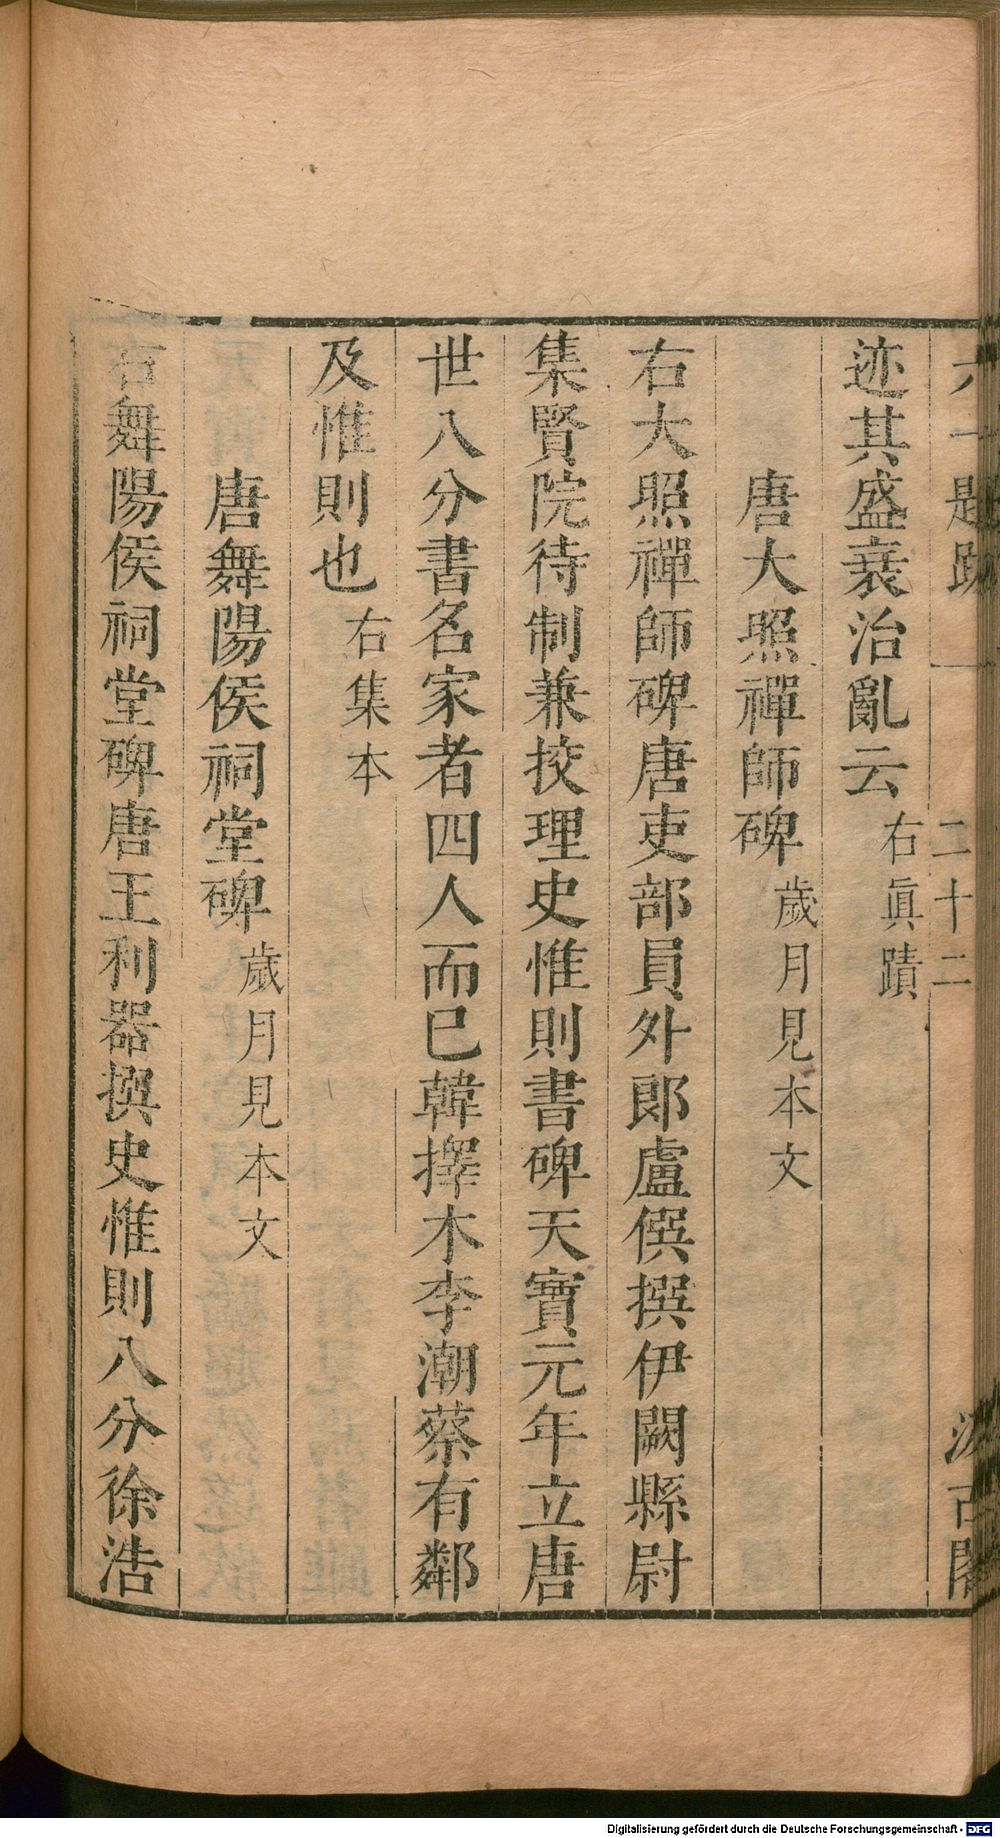 六一題跋 二十二 汲古閣
迹其盛衰治亂云右眞蹟
唐大照禪師碑歲月見本文
右大照禪師碑唐吏部員外郎盧僎撰伊闕縣尉
集賢院待制兼挍理史惟則書碑天寶元年立唐
世八分書名家者四人而已韓擇木李潮蔡有鄰
及惟則也右集本
唐舞陽侯祠堂碑歲月見本文
右舞陽侯祠堂碑唐王利器撰史惟則八分徐浩
Digitalisierung gefördert durch die Deutsche Forschungsgemeinschaft - DFG